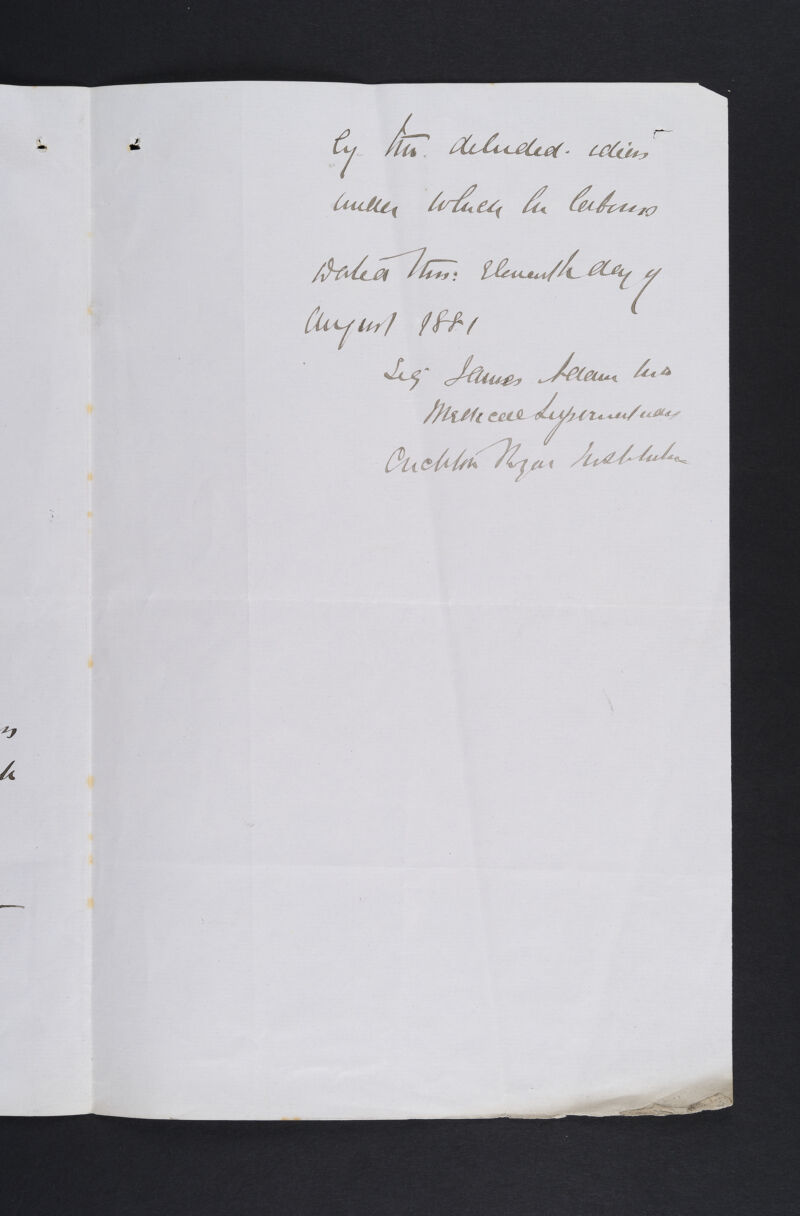 by the deluded ideas
under which he labours
Dated this: Eleventh day of
August 1881
Sig James Adam MD
Medical Superintendent
Crichton Royal Institution